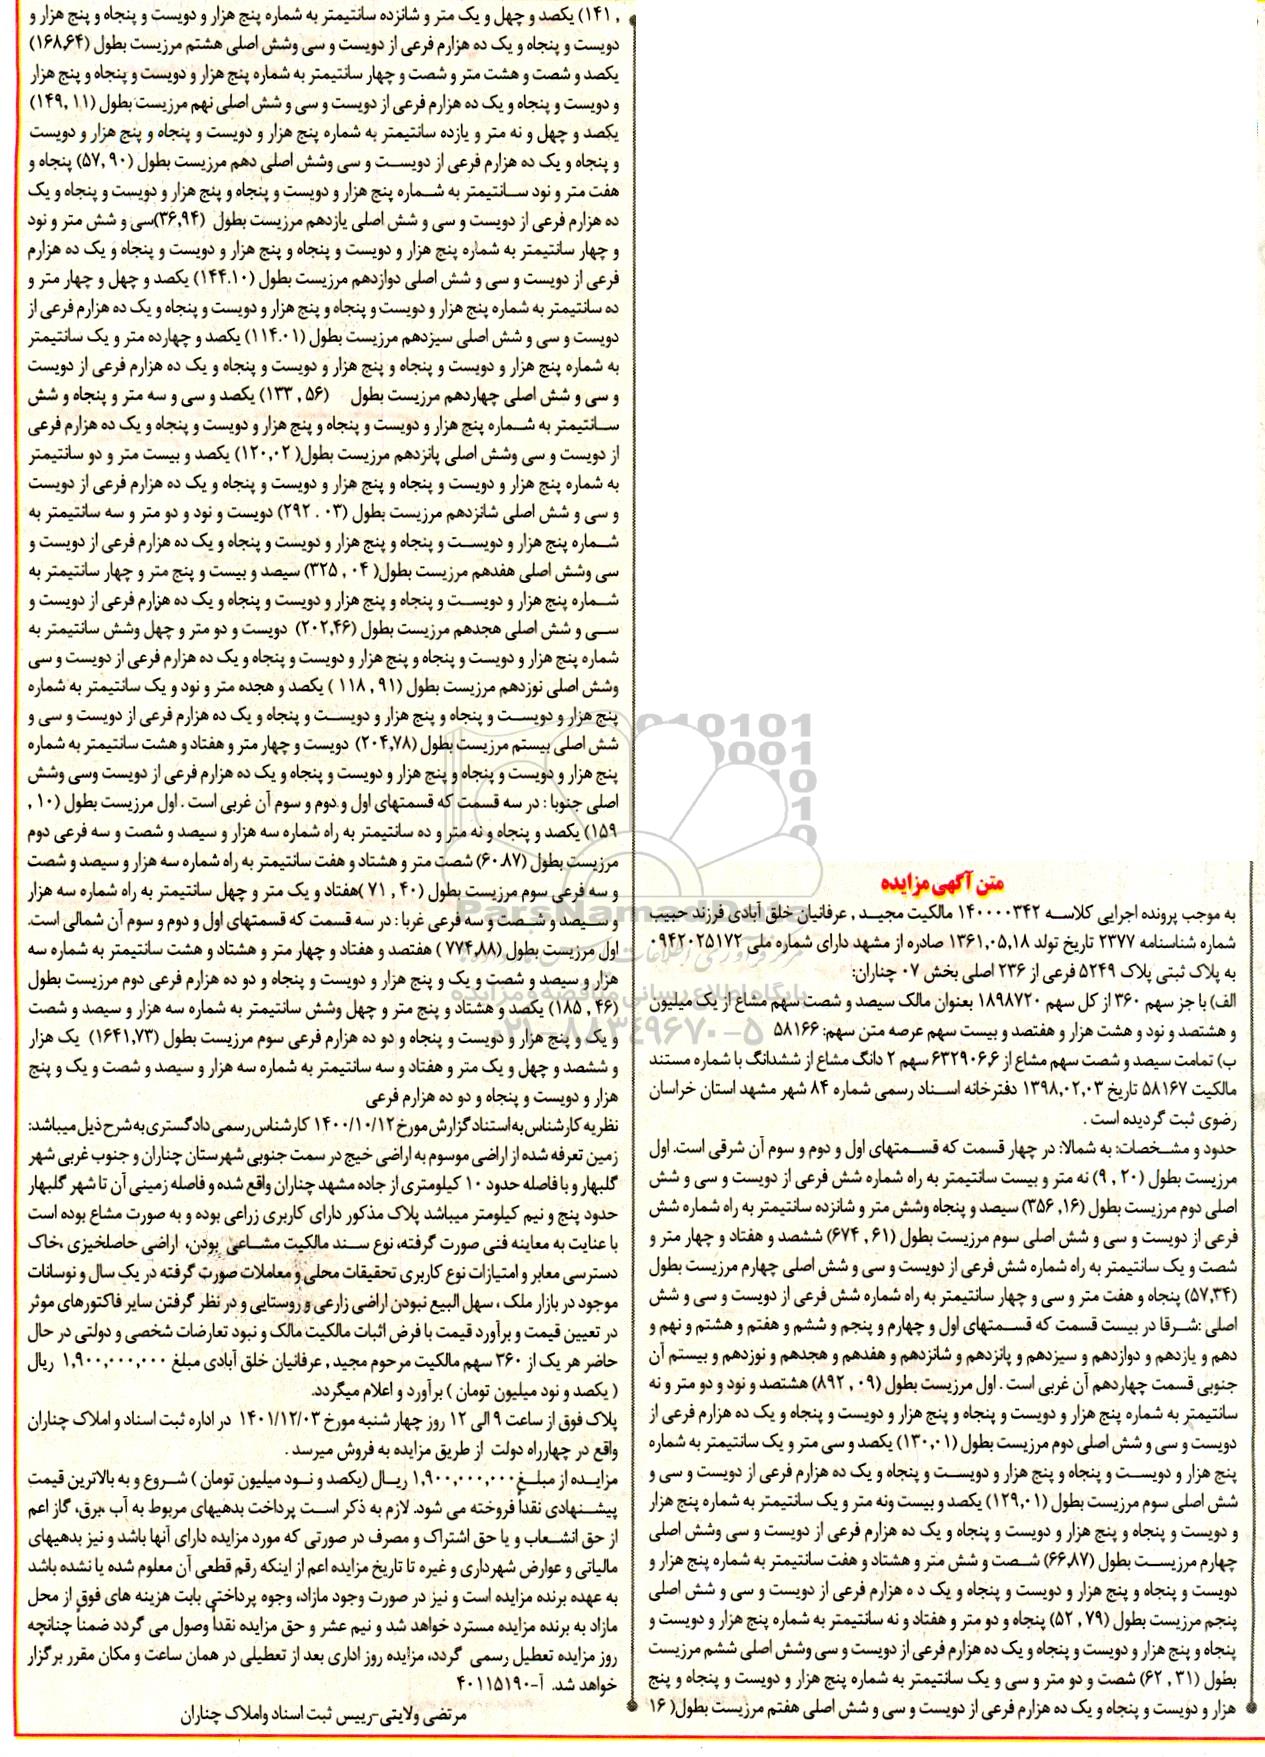 متن آگهی مزایده
به موجب پرونده اجرایی کلاسه ۱۴۰۰۰۰۳۴۲ مالکیت مجید , عرفانیان خلق آبادی فرزند حبیب
شماره شناسنامه ۲۳۷۷ تاریخ تولد ۱۳۶۱,۰۵,۱۸ صادره از مشهد دارای شماره ملی ۰۹۴۲۰۲۵۱۷۲
به پلاک ثبتی پلاک ۵۲۴۹ فرعی از ۲۳۶ اصلی بخش ۰۷ چناران:
الف) با جز سهم ۳۶۰ از کل سهم ۱۸۹۸۷۲۰ بعنوان مالک سیصد و شصت سهم مشاع از یک میلیون
و هشتصد و نود و هشت هزار و هفتصد و بیست سهم عرصه متن سهم: ۵۸۱۶۶
ب) تمامت سیصد و شصت سهم مشاع از ۶۳۲۹۰۶,۶ سهم ۲ دانگ مشاع از ششدانگ با شماره مستند
مالکیت ۵۸۱۶۷ تاریخ ۱۳۹۸,۰۲,۰۳ دفترخانه اسناد رسمی شماره ۸۴ شهر مشهد استان خراسان
رضوی ثبت گردیده است .
حدود و مشخصات: به شمالا: در چهار قسمت که قسمتهای اول و دوم و سوم آن شرقی است. اول
مرزیست بطول (۲۰ , ۹) نه متر و بیست سانتیمتر به راه شماره شش فرعی از دویست و سی و شش
اصلی دوم مرزیست بطول (۱۶, ۳۵۶) سیصد و پنجاه وشش متر و شانزده سانتیمتر به راه شماره شش
فرعی از دویست و سی و شش اصلی سوم مرزیست بطول (۶۱ , ۶۷۴) ششصد و هفتاد و چهار متر و
شصت و یک سانتیمتر به راه شماره شش فرعی از دویست و سی و شش اصلی چهارم مرزیست بطول
(۵۷,۳۴) پنجاه و هفت متر و سی و چهار سانتیمتر به راه شماره شش فرعی از دویست و سی و شش
اصلی :شرقا در بیست قسمت که قسمتهای اول و چهارم و پنجم و ششم و هفتم و هشتم و نهم و
دهم و یازدهم و دوازدهم و سیزدهم و پانزدهم و شانزدهم و هفدهم و هجدهم و نوزدهم و بیستم آن
جنوبی قسمت چهاردهم آن غربی است . اول مرزیست بطول (۰۹ , ۸۹۲) هشتصد و نود و دو متر و نه
سانتیمتر به شماره پنج هزار و دویست و پنجاه و پنج هزار و دویست و پنجاه و یک ده هزارم فرعی از
دویست و سی و شش اصلی دوم مرزیست بطول (۱۳۰,۰۱) یکصد و سی متر و یک سانتیمتر به شماره
پنج هزار و دویست و پنجاه و پنج هزار و دویست و پنجاه و یک ده هزارم فرعی از دویست و سی و
شش اصلی سوم مرزیست بطول (۱۲۹,۰۱) یکصد و بیست ونه متر و یک سانتیمتر به شماره پنج هزار
و دویست و پنجاه و پنج هزار و دویست و پنجاه و یک ده هزارم فرعی از دویست و سی وشش اصلی
چهارم مرزیست بطول (۶۶,۸۷) شصت و شش متر و هشتاد و هفت سانتیمتر به شماره پنج هزار و
دویست و پنجاه و پنج هزار و دویست و پنجاه و یک د ه هزارم فرعی از دویست و سی و شش اصلی
پنجم مرزیست بطول (۷۹ , ۵۲) پنجاه و دو متر و هفتاد و نه سانتیمتر به شماره پنج هزار و دویست و
پنجاه و پنج هزار و دویست و پنجاه و یک ده هزارم فرعی از دویست و سی وشش اصلی ششم مرزیست
بطول (۳۱ , ۶۲) شصت و دو متر و سی و یک سانتیمتر به شماره پنج هزار و دویست و پنجاه و پنج
هزار و دویست و پنجاه و یک ده هزارم فرعی از دویست و سی و شش اصلی هفتم مرزیست بطول( ۱۶
, ۱۴۱) یکصد و چهل و یک متر و شانزده سانتیمتر به شماره پنج هزار و دویست و پنجاه و پنج هزار و
دویست و پنجاه و یک ده هزارم فرعی از دویست و سی وشش اصلی هشتم مرزیست بطول (۱۶۸,۶۴)
یکصد و شصت و هشت متر و شصت و چهار سانتیمتر به شماره پنج هزار و دویست و پنجاه و پنج هزار
و دویست و پنجاه و یک ده هزارم فرعی از دویست و سی و شش اصلی نهم مرزیست بطول (۱۱ ,۱۴۹)
یکصد و چهل و نه متر و یازده سانتیمتر به شماره پنج هزار و دویست و پنجاه و پنج هزار و دویست
و پنجاه و یک ده هزارم فرعی از دویست و سی وشش اصلی دهم مرزیست بطول (۹۰ ,۵۷) پنجاه و
هفت متر و نود سانتیمتر به شماره پنج هزار و دویست و پنجاه و پنج هزار و دویست و پنجاه و یک
ده هزارم فرعی از دویست و سی و شش اصلی یازدهم مرزیست بطول (۳۶,۹۴)سی و شش متر و نود
و چهار سانتیمتر به شماره پنج هزار و دویست و پنجاه و پنج هزار و دویست و پنجاه و یک ده هزارم
فرعی از دویست و سی و شش اصلی دوازدهم مرزیست بطول (۱۴۴.۱۰) یکصد و چهل و چهار متر و
ده سانتیمتر به شماره پنج هزار و دویست و پنجاه و پنج هزار و دویست و پنجاه و یک ده هزارم فرعی از
دویست و سی و شش اصلی سیزدهم مرزیست بطول (۱۱۴.۰۱) یکصد و چهارده متر و یک سانتیمتر
به شماره پنج هزار و دویست و پنجاه و پنج هزار و دویست و پنجاه و یک ده هزارم فرعی از دویست
و سی و شش اصلی چهاردهم مرزیست بطول (۵۶ , ۱۳۳) یکصد و سی و سه متر و پنجاه و شش
سانتیمتر به شماره پنج هزار و دویست و پنجاه و پنج هزار و دویست و پنجاه و یک ده هزارم فرعی
از دویست و سی وشش اصلی پانزدهم مرزیست بطول( ۱۲۰,۰۲) یکصد و بیست متر و دو سانتیمتر
به شماره پنج هزار و دویست و پنجاه و پنج هزار و دویست و پنجاه و یک ده هزارم فرعی از دویست
و سی و شش اصلی شانزدهم مرزیست بطول (۰۳ . ۲۹۲) دویست و نود و دو متر و سه سانتیمتر به
شماره پنج هزار و دویست و پنجاه و پنج هزار و دویست و پنجاه و یک ده هزارم فرعی از دویست و
سی وشش اصلی هفدهم مرزیست بطول( ۰۴ , ۳۲۵) سیصد و بیست و پنج متر و چهار سانتیمتر به
شماره پنج هزار و دویست و پنجاه و پنج هزار و دویست و پنجاه و یک ده هزارم فرعی از دویست و
سی و شش اصلی هجدهم مرزیست بطول (۲۰۲,۴۶) دویست و دو متر و چهل وشش سانتیمتر به
شماره پنج هزار و دویست و پنجاه و پنج هزار و دویست و پنجاه و یک ده هزارم فرعی از دویست و سی
وشش اصلی نوزدهم مرزیست بطول (۹۱ , ۱۱۸ ) یکصد و هجده متر و نود و یک سانتیمتر به شماره
پنج هزار و دویست و پنجاه و پنج هزار و دویست و پنجاه و یک ده هزارم فرعی از دویست و سی و
شش اصلی بیستم مرزیست بطول (۲۰۴,۷۸) دویست و چهار متر و هفتاد و هشت سانتیمتر به شماره
پنج هزار و دویست و پنجاه و پنج هزار و دویست و پنجاه و یک ده هزارم فرعی از دویست وسی وشش
اصلی جنوبا : در سه قسمت که قسمتهای اول و دوم و سوم آن غربی است . اول مرزیست بطول (۱۰ ,
۱۵۹) یکصد و پنجاه و نه متر و ده سانتیمتر به راه شماره سه هزار و سیصد و شصت و سه فرعی دوم
مرزیست بطول (۶۰.۸۷) شصت متر و هشتاد و هفت سانتیمتر به راه شماره سه هزار و سیصد و شصت
و سه فرعی سوم مرزیست بطول (۴۰ , ۷۱ )هفتاد و یک متر و چهل سانتیمتر به راه شماره سه هزار
و سیصد و شصت و سه فرعی غربا : در سه قسمت که قسمتهای اول و دوم و سوم آن شمالی است.
اول مرزیست بطول (۷۷۴,۸۸ ) هفتصد و هفتاد و چهار متر و هشتاد و هشت سانتیمتر به شماره سه
هزار و سیصد و شصت و یک و پنج هزار و دویست و پنجاه و دو ده هزارم فرعی دوم مرزیست بطول
(۴۶ , ۱۸۵) یکصد و هشتاد و پنج متر و چهل وشش سانتیمتر به شماره سه هزار و سیصد و شصت
و یک و پنج هزار و دویست و پنجاه و دو ده هزارم فرعی سوم مرزیست بطول (۱۶۴۱,۷۳) یک هزار
و ششصد و چهل و یک متر و هفتاد و سه سانتیمتر به شماره سه هزار و سیصد و شصت و یک و پنج
هزار و دویست و پنجاه و دو ده هزارم فرعی
نظریه کارشناس به استناد گزارش مورخ ۱۴۰۰/۱۰/۱۲ کارشناس رسمی دادگستری به شرح ذیل میباشد:
زمین تعرفه شده از اراضی موسوم به اراضی خیج در سمت جنوبی شهرستان چناران و جنوب غربی شهر
گلبهار و با فاصله حدود ۱۰ کیلومتری از جاده مشهد چناران واقع شده و فاصله زمینی آن تا شهر گلبهار
حدود پنج و نیم کیلومتر میباشد پلاک مذکور دارای کاربری زراعی بوده و به صورت مشاع بوده است
با عنایت به معاینه فنی صورت گرفته، نوع سند مالکیت مشاعی بودن، اراضی حاصلخیزی ،خاک
دسترسی معابر و امتیازات نوع کاربری تحقیقات محلی و معاملات صورت گرفته در یک سال و نوسانات
موجود در بازار ملک ، سهل البیع نبودن اراضی زارعی و روستایی و در نظر گرفتن سایر فاکتورهای موثر
در تعیین قیمت و برآورد قیمت با فرض اثبات مالکیت مالک و نبود تعارضات شخصی و دولتی در حال
حاضر هر یک از ۳۶۰ سهم مالکیت مرحوم مجید , عرفانیان خلق آبادی مبلغ ۱,۹۰۰,۰۰۰,۰۰۰ ریال
( یکصد و نود میلیون تومان ) برآورد و اعلام میگردد.
پلاک فوق از ساعت ۹ الی ۱۲ روز چهار شنبه مورخ ۱۴۰۱/۱۲/۰۳ در اداره ثبت اسناد و املاک چناران
واقع در چهارراه دولت از طریق مزایده به فروش میرسد .
مزایده از مبلغ ۱,۹۰۰,۰۰۰,۰۰۰ ریال (یکصد و نود میلیون تومان ) شروع و به بالاترین قیمت
پیشنهادی نقداً فروخته می شود. لازم به ذکر است پرداخت بدهیهای مربوط به آب ،برق، گاز اعم
از حق انشعاب و یا حق اشتراک و مصرف در صورتی که مورد مزایده دارای آنها باشد و نیز بدهیهای
مالیاتی و عوارض شهرداری و غیره تا تاریخ مزایده اعم از اینکه رقم قطعی آن معلوم شده یا نشده باشد
به عهده برنده مزایده است و نیز در صورت وجود مازاد، وجوه پرداختی بابت هزینه های فوق از محل
مازاد به برنده مزایده مسترد خواهد شد و نیم عشر و حق مزایده نقداً وصول می گردد ضمناً چنانچه
روز مزایده تعطیل رسمی گردد، مزایده روز اداری بعد از تعطیلی در همان ساعت و مکان مقرر برگزار
خواهد شد. آ-۴۰۱۱۵۱۹۰
مرتضی ولایتی-رییس ثبت اسناد واملاک چناران
ParsNamadData
پایگاه اطلاع رسانی مناقصه و مزایده
۰۲۱-۸۸۳۴۹۶۷۰-۵